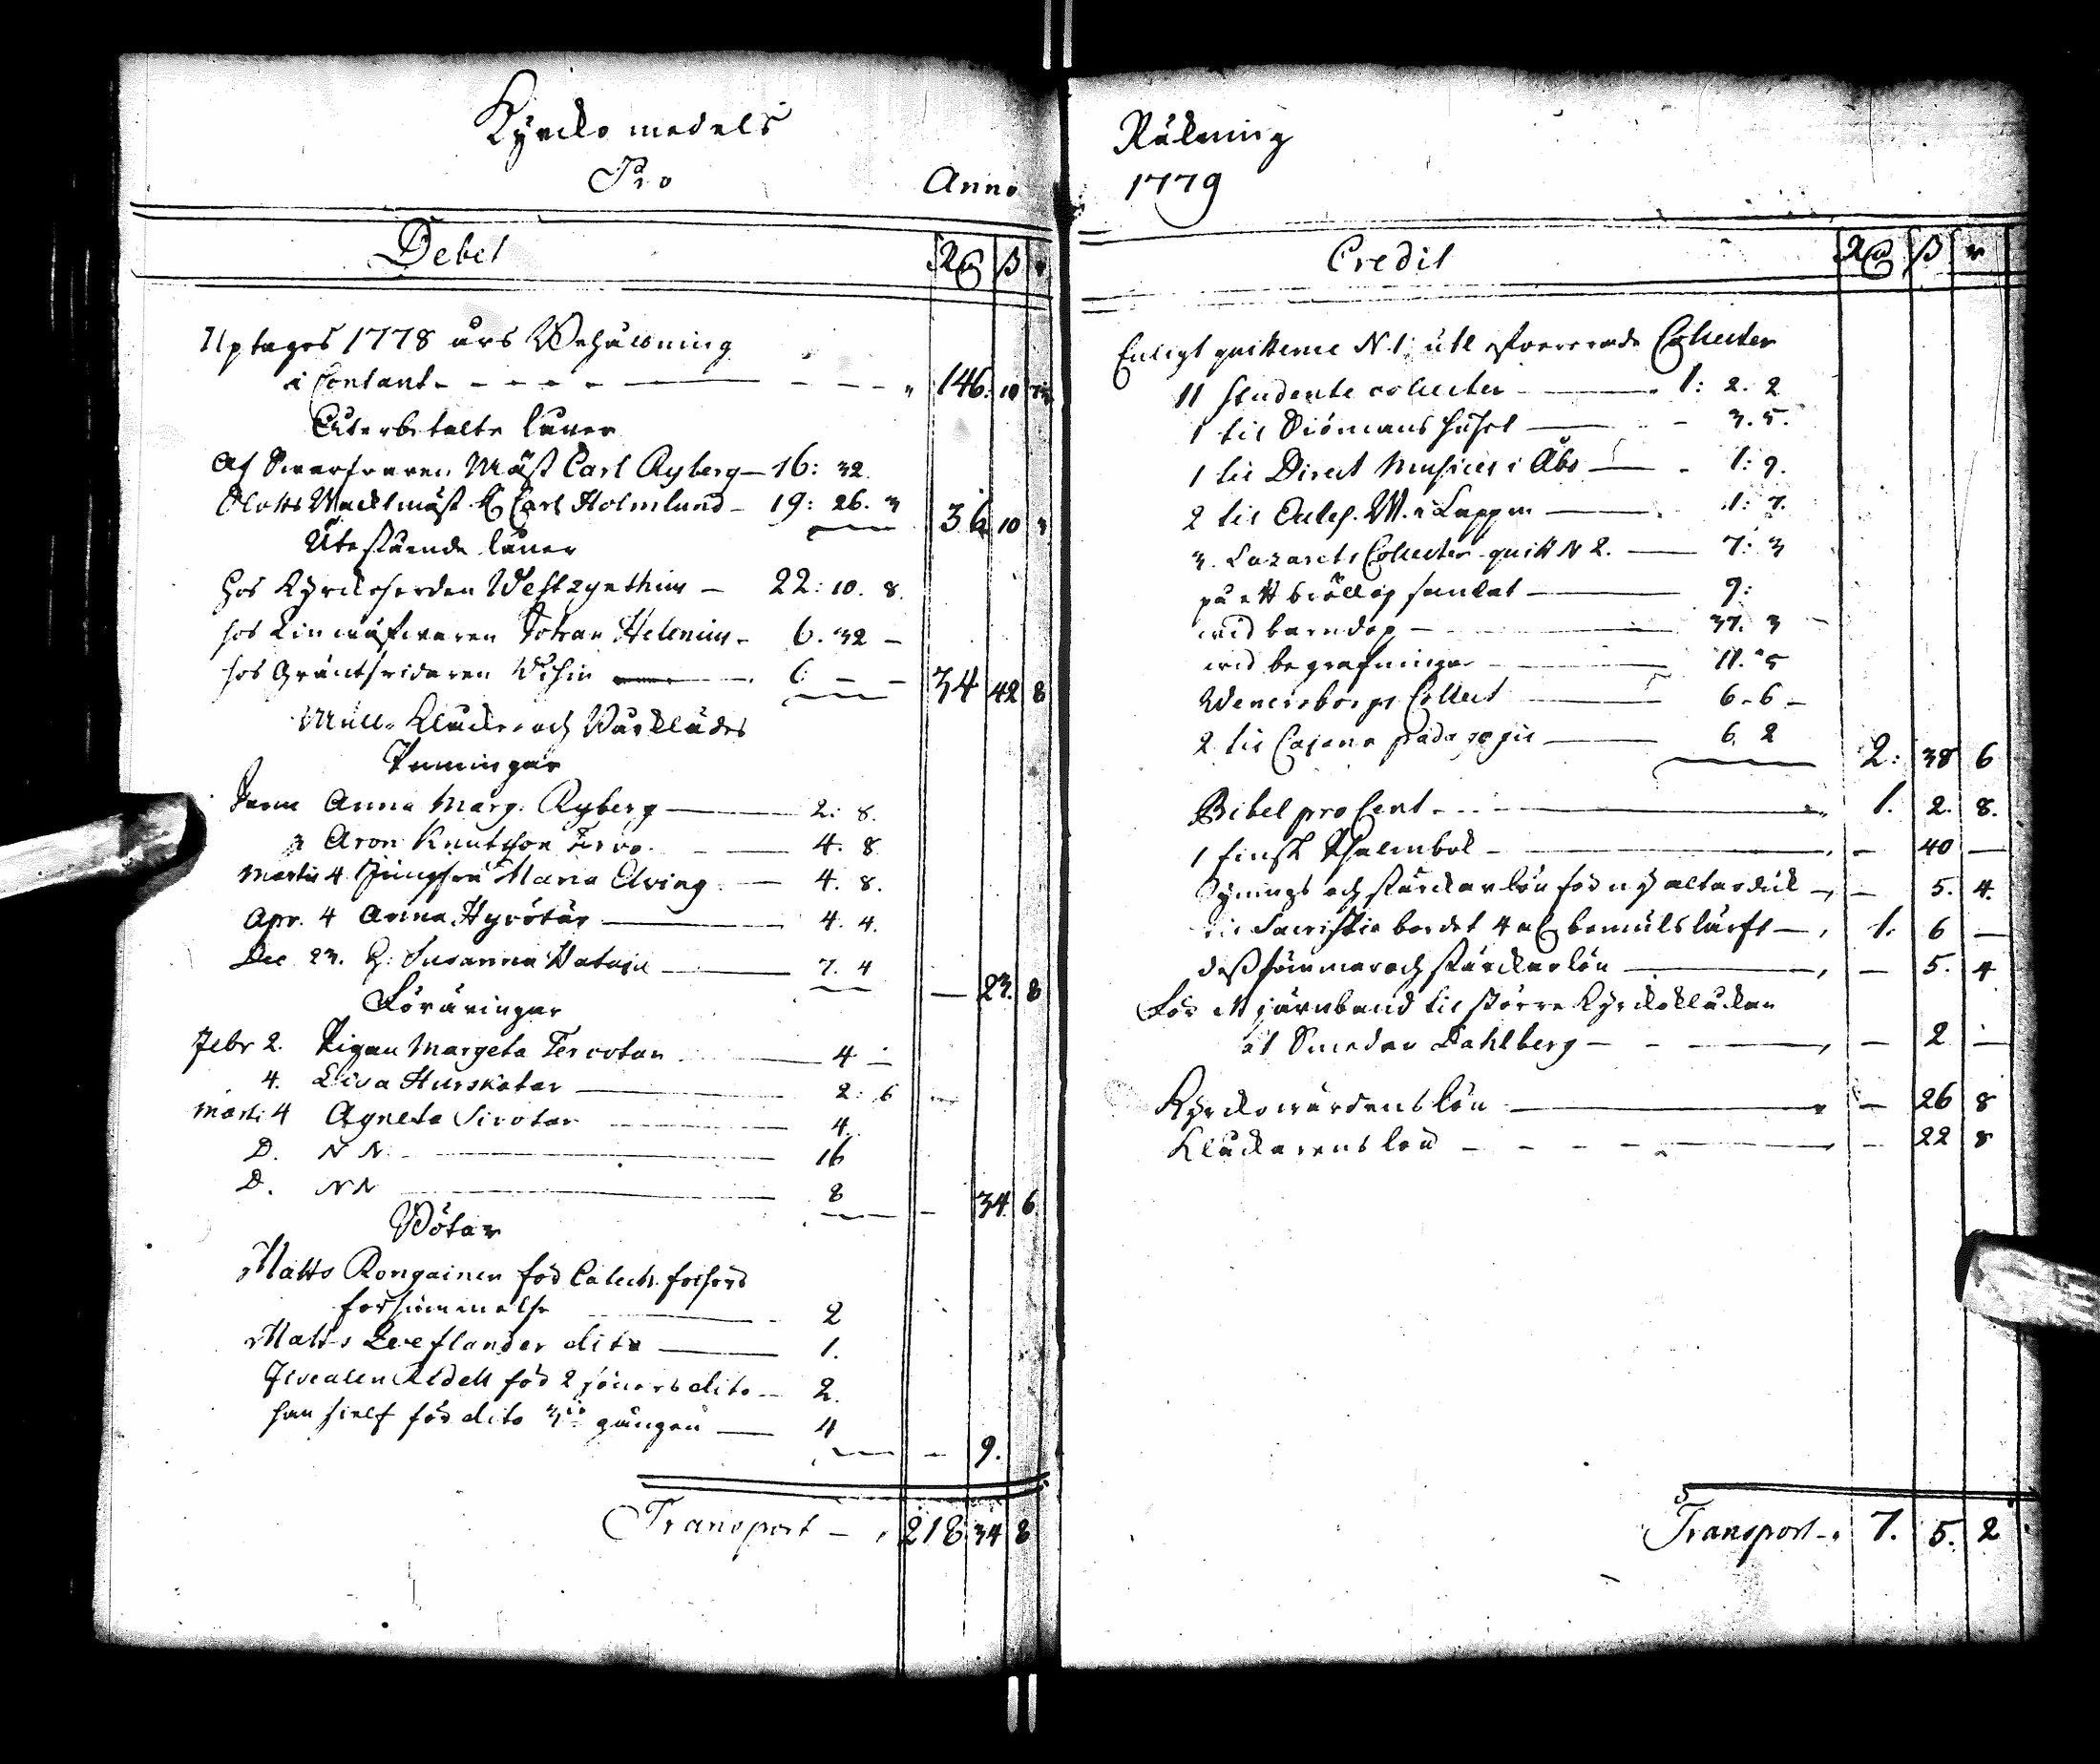 Kyrcko medels
Pro Anno
Debet Rd ß r
Uptages 1778 års Behållning
i Contant 146: 10
Återbetalte låner
Af Swarfwaren Mäst Carl Ryberg 16: 32.
Slotts Wacktmäst. H Carl Holmlund 19: 26. 3 36 10 3
Utestående låner
hos Kyrckoherden Westzynthius 22: 10. 8.
hos Länmästaren Johan Helenius 6. 32 —
hos Gräntsridaren 6: — — 34 42 8
Mull- Klocke och Bårklädes
Penningar
Anna Marg. Ryberg 2: 8.
3 Aron Knutsson Tervo 4. 8
Martii 4 Jungfru Maria Elving 4. 8.
Apr. 4 Anna Hyrötär 4. 4.
Dec 23. H: Susanna Wataja 7. 4 — 23. 8
Föräringar
Febr 2. Pigan Margeta Tervotar 4 —
4. Lisa Hurskatar 2: 6
Marti 4 Agneta Sirotar 4.
D. N N. 16
D. N N 8 — 34. 6
Böter
Matts Rongainen för Catech. förhörs
försummelse 2
Matts Leeflander dito 1.
för 2 söners dito 2.
han sielf för dito 3 gången 4
— 9.
Transport 218 34 8
Räkning
1779
Credit Rd ß r
Enligt quittence N. 1. utlefvererade Collecter
11 Studente collecter 1: 2. 2
1 til Siömans huset 3. 5.
1 til Direct Musices i Åbo 1: 9.
2 til Eccles. W. i Lappm 1: 7.
3. Lazarets Collecter quitt N 2. 7: 3
på ett bröllop samlat 9:
wid barndop 37. 3
wid begrafningar 11. 5
Wenersborgs Collect 6. 6 —
2 til Cajana pædagogie 6. 2 2: 38 6
Bibel pro Cent 1. 2. 8.
1 finsk Psalmbok — 40 —
Synings och stärckarlön för nyss altarduk — 5. 4.
til Sacristie bordet 4 al bomulslärft 1. 6 —
dess sömmar och stärckarlön — 5. 4
För ett järnband til större Kyrckoklåckan
åt Smeden Dahlberg — 2 —
Kyrckowärdens lön — 26 8
Klåckarens lön — 22 8
Transport 7. 5. 2